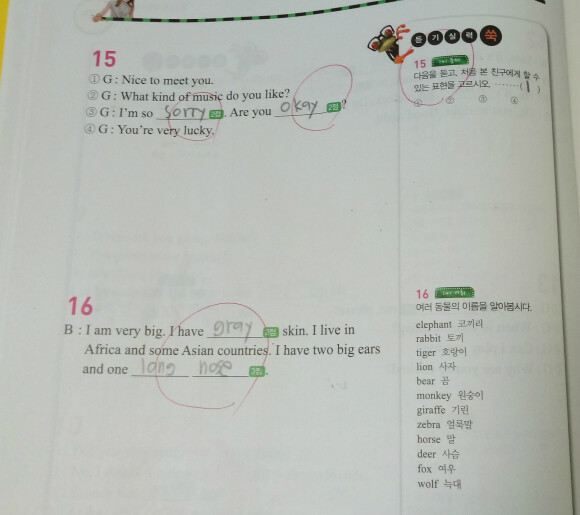 듣 기 실 력 쑥
15
① G : Nice to meet you.
② G : What kind of music do you like?
③ G : I'm so sorry 2점. Are you okay 2점?
④ G : You're very lucky.
15
다음을 듣고, 처음 본 친구에게 할 수
있는 표현을 고르시오. ········( 1 )
① ② ③ ④
16
B : I am very big. I have gray 2점 skin. I live in
Africa and some Asian countries. I have two big ears
and one long nose 2점.
16
여러 동물의 이름을 알아봅시다.
elephant 코끼리
rabbit 토끼
tiger 호랑이
lion 사자
bear 곰
monkey 원숭이
giraffe 기린
zebra 얼룩말
horse 말
deer 사슴
fox 여우
wolf 늑대